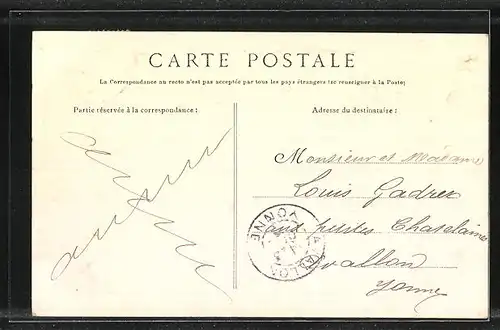 CARTE POSTALE
La Correspondance au recto n'est pas acceptée par tous les pays étrangers (se renseigner à la Poste)
Partie réservée à la correspondance :
Adresse du destinataire :
Monsieur et Madame
Louis
aux petites Chatelaines
Avallon
Yonne
AVALLON
YONNE